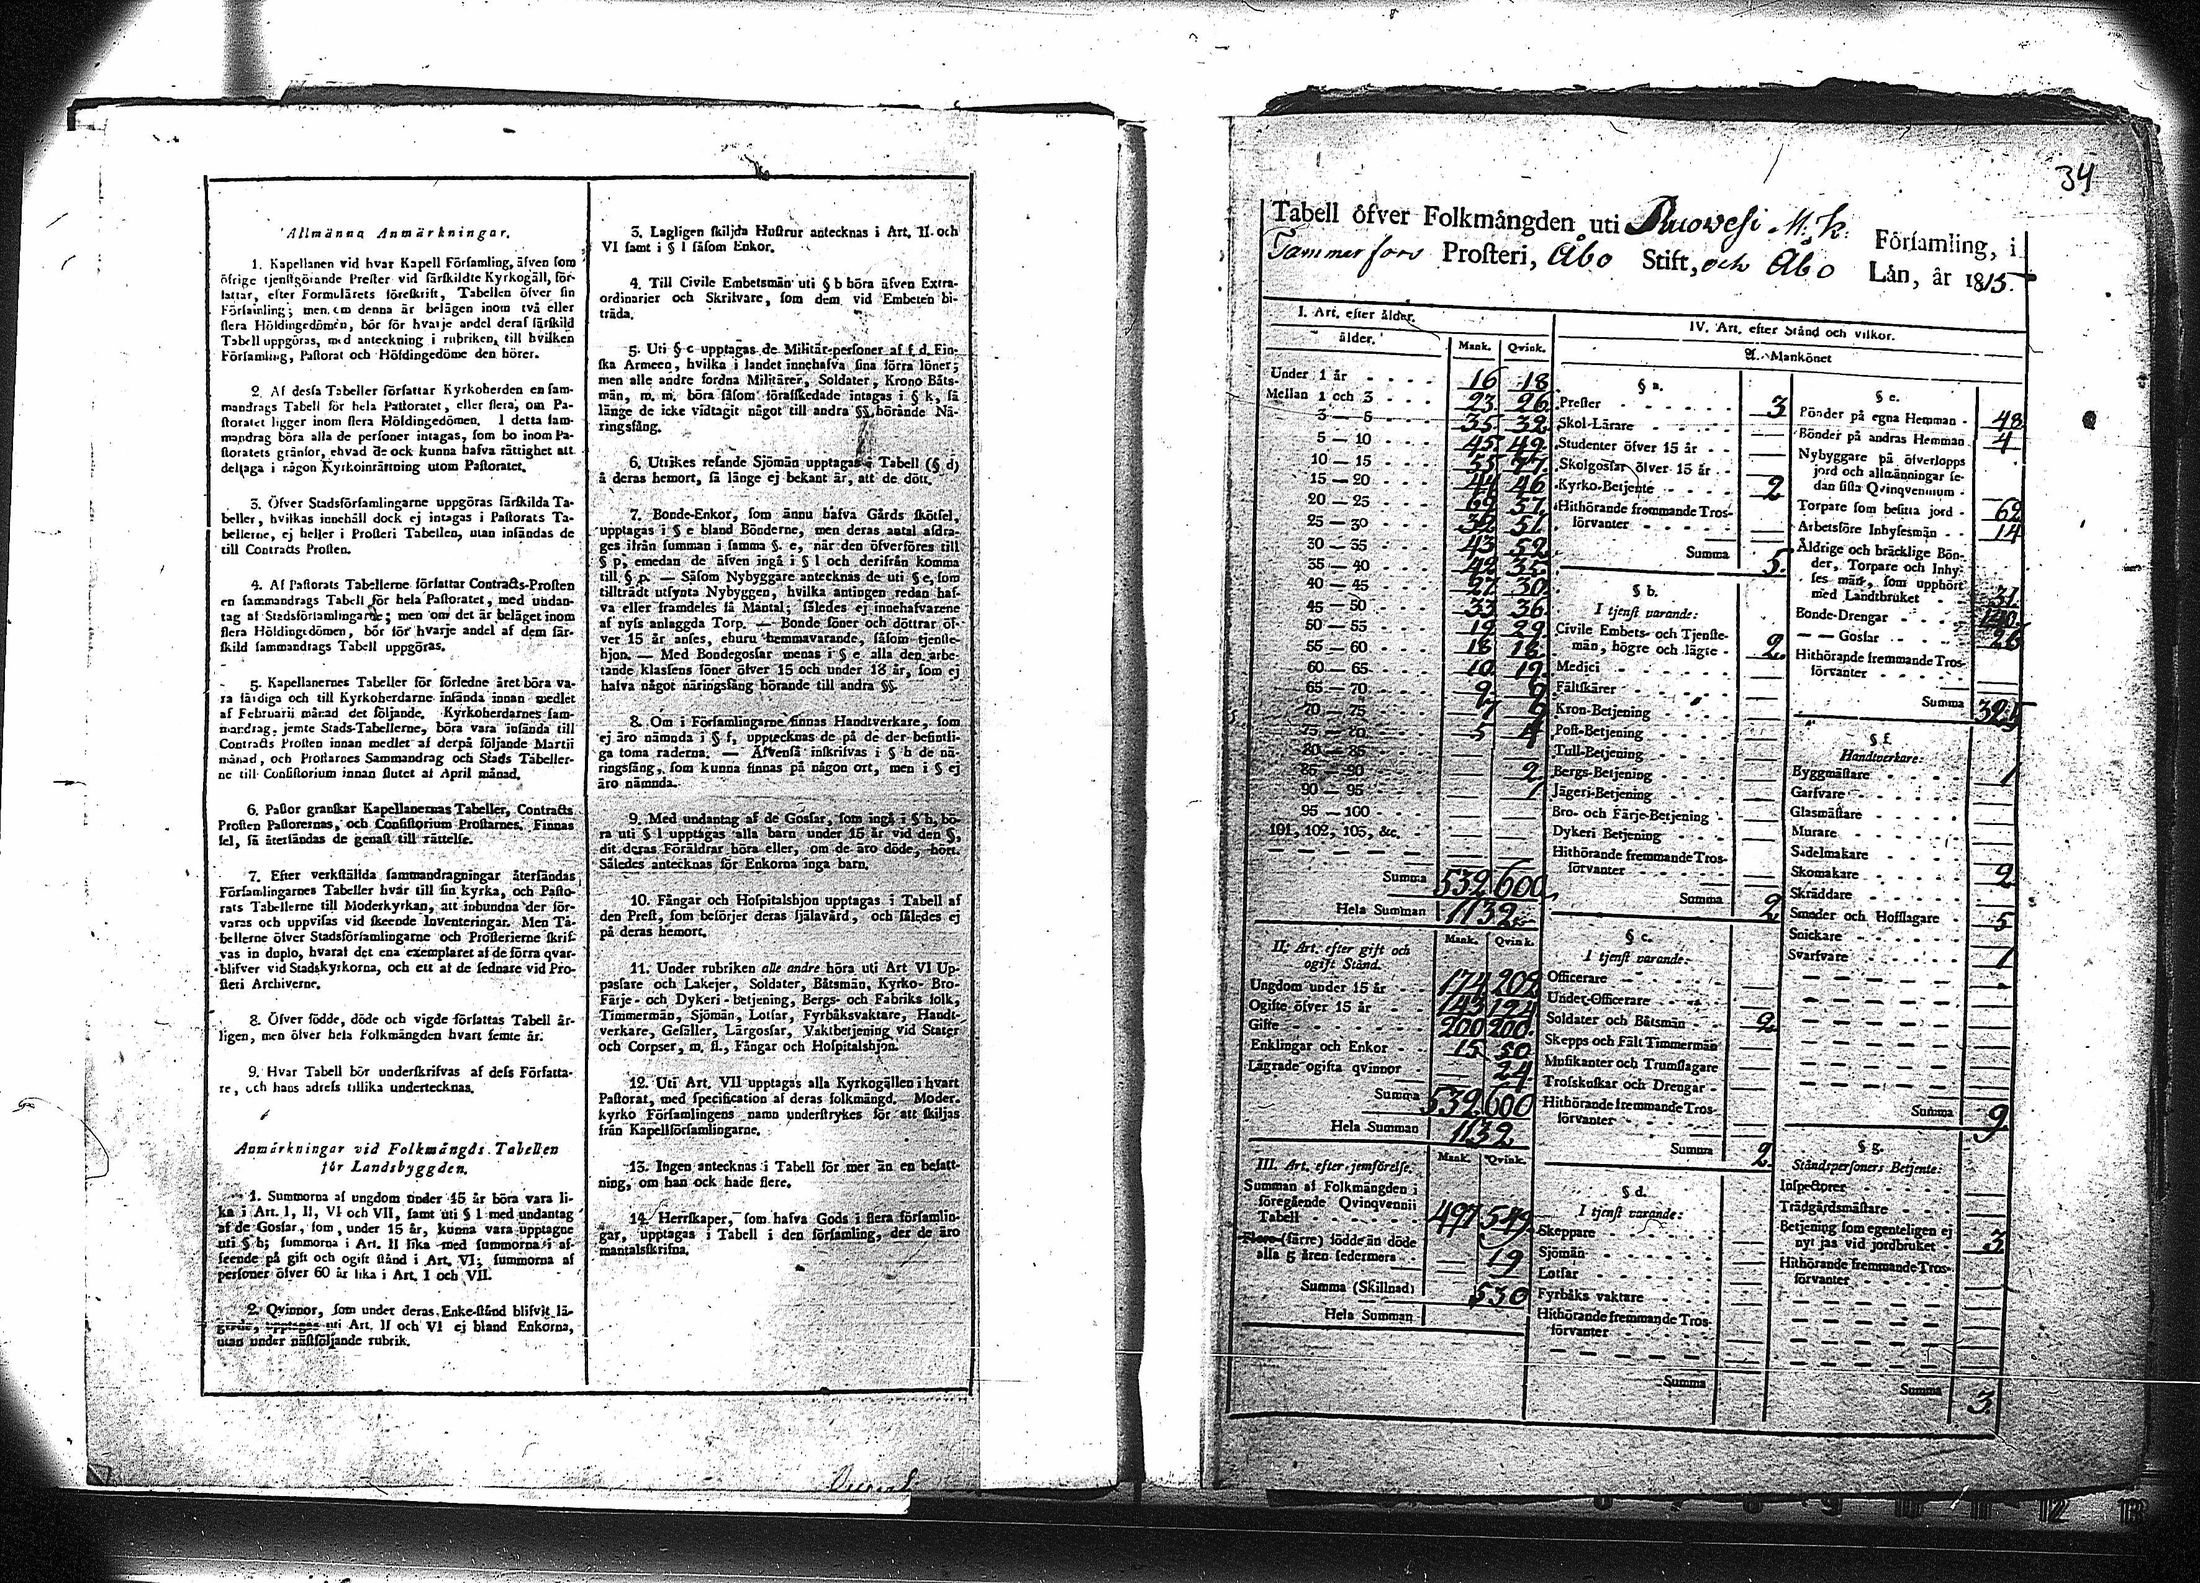 Allmänna Anmärkningar.
1. Kapellanen vid hvar Kapell Församling, äfven som
öfrige tjenstgörande Prester vid särskildte Kyrkogäll, för-
fattar, efter Formulärets föreskrift, Tabellen öfver sin
Församling; men om denna är belägen inom två eller
flera Höfdingedömen, bör för hvarje andel deraf särskild
Tabell uppgöras, med anteckning i rubriken, till hvilken
Församling, Pastorat och Höfdingedöme den hörer.
2. Af dessa Tabeller författar Kyrkoherden en sam-
mandrags Tabell för hela Pastoratet, eller flera, om Pa-
storatet ligger inom flera Höfdingedömen. I detta sam-
mandrag böra alla de personer intagas, som bo inom Pa-
storatets gränsor, ehvad de ock kunna hafva rättighet att
deltaga i någon Kyrkoinrättning utom Pastoratet.
3. Öfver Stadsförsamlingarne uppgöras särskilda Ta-
beller, hvilkas innehåll dock ej intagas i Pastorats Ta-
bellerne, ej heller i Prosteri Tabellen, utan insändas de
till Contracts Prosten.
4. Af Pastorats Tabellerne författar Contracts-Prosten
en sammandrags Tabell för hela Pastoratet, med undan-
tag af Stadsförsamlingarne; men om det är beläget inom
flera Höfdingedömen, bör för hvarje andel af dem sär-
skild sammandrags Tabell uppgöras.
5. Kapellanernes Tabeller för förledne året böra va-
ra färdiga och till Kyrkoherdarne insända innan medlet
af Februarii månad det följande. Kyrkoherdarnes sam-
mandrag, jemte Stads-Tabellerne, böra vara insända till
Contracts Prosten innan medlet af derpå följande Martii
månad, och Prostarnes Sammandrag och Stads Tabeller-
ne till Consistorium innan slutet af April månad.
6. Pastor granskar Kapellanernas Tabeller, Contracts
Prosten Pastorernas, och Consistorium Prostarnes. Finnas
fel, så återsändas de genast till rättelse.
7. Efter verkställda sammandragningar återsändas
Församlingarnes Tabeller hvar till sin kyrka, och Pasto-
rats Tabellerne till Moderkyrkan, att inbundna der för-
varas och uppvisas vid skeende Inventeringar. Men Ta-
bellerne öfver Stadsförsamlingarne och Prosterierne skrif-
vas in duplo, hvaraf det ena exemplaret af de förra qvar-
blifver vid Stadskyrkorna, och ett af de sednare vid Pro-
steri Archiverne.
8. Öfver födde, döde och vigde författas Tabell år-
ligen, men öfver hela Folkmängden hvart femte år.
9. Hvar Tabell bör underskrifvas af dess Författa-
re, och hans adress tillika undertecknas.
Anmärkningar vid Folkmängds Tabellen
för Landsbyggden.
1. Summorna af ungdom under 15 år böra vara li-
ka i Art. I, II, VI och VII, samt uti § l med undantag
af de Gossar, som, under 15 år, kunna vara upptagne
uti § b; summorna i Art. II lika med summorna i af-
seende på gift och ogift stånd i Art. VI; summorna af
personer öfver 60 år lika i Art. I och VII.
2. Qvinnor, som under deras Enke-stånd blifvit lä-
grade, upptagas uti Art. II och VI ej bland Enkorna,
utan under nästföljande rubrik.
3. Lagligen skiljda Hustrur antecknas i Art. II och
VI samt i § l såsom Enkor.
4. Till Civile Embetsmän uti § b böra äfven Extra-
ordinarier och Skrifvare, som dem vid Embeten bi-
träda.
5. Uti § c upptagas de Militär-personer af f. d. Fin-
ska Armeen, hvilka i landet innehafva sina förra löner;
men alle andre fordna Militärer, Soldater, Krono Båts-
män, m. m. böra såsom förafskedade intagas i § k, så
länge de icke vidtagit något till andra §§ hörande Nä-
ringsfång.
6. Utrikes resande Sjömän upptagas i Tabell (§ d)
å deras hemort, så länge ej bekant är, att de dött.
7. Bonde-Enkor, som ännu hafva Gårds skötsel,
upptagas i § e bland Bönderne, men deras antal afdra-
ges ifrån summan i samma §. e, när den öfverföres till
§ p, emedan de äfven ingå i § l och derifrån komma
till § p. — Såsom Nybyggare antecknas de uti § e, som
tillträdt utsynta Nybyggen, hvilka antingen redan haf-
va eller framdeles få Mantal; således ej innehafvarene
af nyss anlaggda Torp. — Bonde söner och döttrar öf-
ver 15 år anses, ehuru hemmavarande, såsom tjenste-
hjon. — Med Bondegossar menas i § e alla den arbe-
tande klassens söner öfver 15 och under 18 år, som ej
hafva något näringsfång hörande till andra §§.
8. Om i Församlingarne finnas Handtverkare, som
ej äro nämnda i § f, upptecknas de på de der befintli-
ga toma raderna. — Äfvenså inskrifvas i § h de nä-
ringsfång, som kunna finnas på någon ort, men i § ej
äro nämnda.
9. Med undantag af de Gossar, som ingå i § h, bö-
ra uti § l upptagas alla barn under 15 år vid den §,
dit deras Föräldrar höra eller, om de äro döde, hört.
Således antecknas för Enkorna inga barn.
10. Fångar och Hospitalshjon upptagas i Tabell af
den Prest, som besörjer deras själavård, och således ej
på deras hemort.
11. Under rubriken alle andre höra uti Art VI Up-
passare och Lakejer, Soldater, Båtsmän, Kyrko- Bro-
Färje- och Dykeri-betjening, Bergs- och Fabriks folk,
Timmermän, Sjömän, Lotsar, Fyrbåksvaktare, Handt-
verkare, Gesäller, Lärgossar, Vaktbetjening vid Stater
och Corpser, m. fl., Fångar och Hospitalshjon.
12. Uti Art. VII upptagas alla Kyrkogällen i hvart
Pastorat, med specification af deras folkmängd. Moder-
kyrko Församlingens namn understrykes för att skiljas
från Kapellförsamlingarne.
13. Ingen antecknas i Tabell för mer än en befatt-
ning, om han ock hade flere.
14. Herrskaper, som hafva Gods i flera församlin-
gar, upptagas i Tabell i den församling, der de äro
mantalsskrifna.
34
Tabell öfver Folkmängden uti Ruowesi M. k. Församling, i
Tammerfors Prosteri, Åbo Stift, och Åbo Län, år 1815.
I. Art. efter ålder.
ålder. Mank. Qvink.
Under 1 år 16 18
Mellan 1 och 3 23 26
3 — 5 35 32
5 — 10 45 49
10 — 15 55 77
15 — 20 44 46
20 — 25 69 57
25 — 30 51
30 — 35 43 52
35 — 40 42 35
40 — 45 27 30
45 — 50 33 36
50 — 55 19 29
55 — 60 18 18
60 — 65 10 19
65 — 70 9
70 — 75
75 — 80 5 4
80 — 85
85 — 90 2
90 — 95 1
95 — 100
101, 102, 103, &c.
Summa 532 600
Hela Summan 1132
II. Art. efter gift och
ogift Stånd. Mank. Qvink.
Ungdom under 15 år 174 202
Ogifte öfver 15 år 143 124
Gifte 200 200
Enklingar och Enkor 15 50
Lägrade ogifta qvinnor 24
Summa 532 600
Hela Summan 1132
III. Art. efter jemförelse. Mank. Qvink.
Summan af Folkmängden i
föregående Qvinqvennii
Tabell 497 549
Flere (färre) födde än döde
alla 5 åren sedermera 19
Summa (Skillnad) 530
Hela Summan
IV. Art. efter Stånd och vilkor.
A. Mankönet
§ a.
Prester 3
Skol-Lärare
Studenter öfver 15 år
Skolgossar öfver 15 år
Kyrko-Betjente 2
Hithörande fremmande Tros-
förvanter
Summa 5
§ b.
I tjenst varande:
Civile Embets- och Tjenste-
män, högre och lägre 2
Medici
Fältskärer
Kron-Betjening
Post-Betjening
Tull-Betjening
Bergs-Betjening
Jägeri-Betjening
Bro- och Färje-Betjening
Dykeri Betjening
Hithörande fremmande Tros-
förvanter
Summa 2
§ c.
I tjenst varande:
Officerare
Under-Officerare
Soldater och Båtsmän 2
Skepps och Fält Timmermän
Musikanter och Trumslagare
Trosskuskar och Drengar
Hithörande fremmande Tros-
förvanter
Summa 2
§ d.
I tjenst varande:
Skeppare
Sjömän
Lotsar
Fyrbåks vaktare
Hithörande fremmande Tros-
förvanter
Summa
§ e.
Bönder på egna Hemman 48
Bönder på andras Hemman 4
Nybyggare på öfverlopps
jord och allmänningar se-
dan sista Qvinqvennium
Torpare som besitta jord 62
Arbetsföre Inhysesmän 14
Äldrige och bräcklige Bön-
der, Torpare och Inhy-
ses män, som upphört
med Landtbruket 31
Bonde-Drengar 140
— — Gossar 26
Hithörande fremmande Tros-
förvanter
Summa 325
§ f.
Handtverkare:
Byggmästare 1
Garfvare
Glasmästare
Murare
Sadelmakare
Skomakare 2
Skräddare
Smeder och Hofslagare 5
Snickare
Svarfvare 1
Summa 9
§ g.
Ståndspersoners Betjente:
Inspectorer
Trädgårdsmästare
Betjening som egenteligen ej
nyttjas vid jordbruket 3
Hithörande fremmande Tros-
förvanter
Summa 3